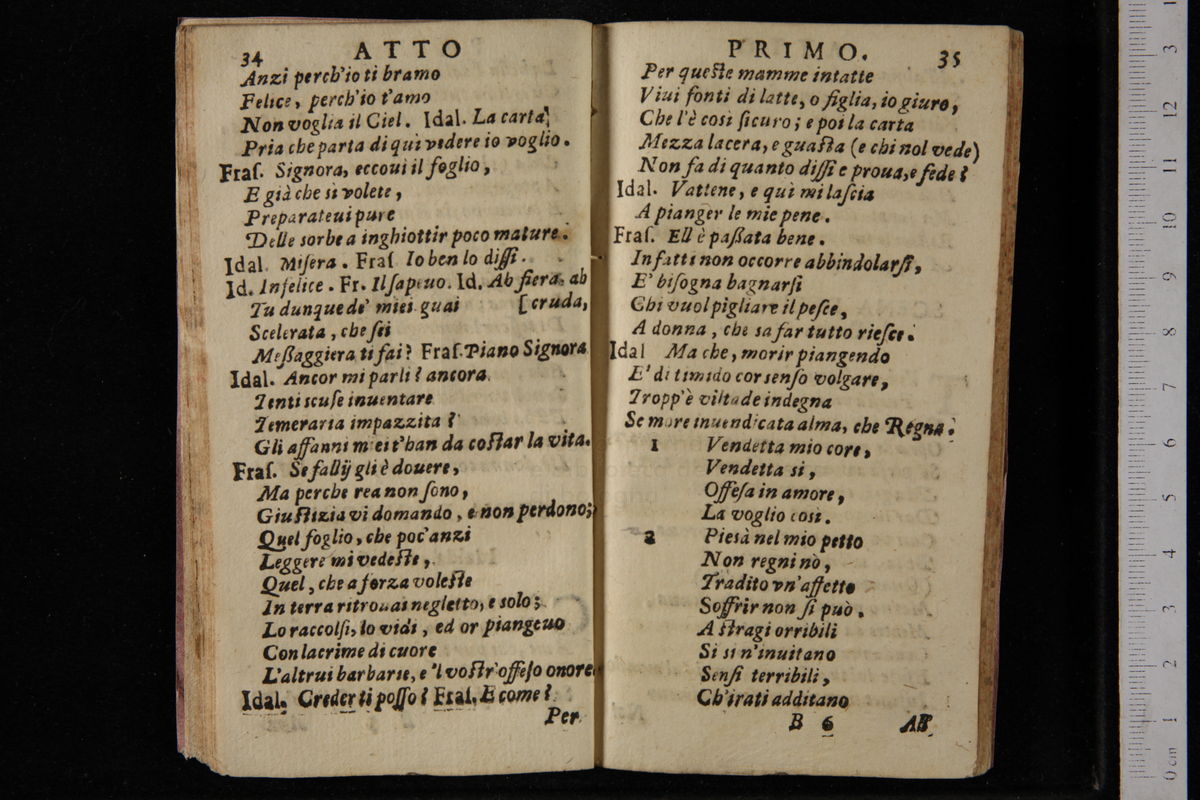 34 ATTO
Anzi perch'io ti bramo
Felice, perch'io t'amo
Non voglia il Ciel. Idal. La carta!
Pria che parta di qui vedere io voglio.
Fraſ. Signora, eccoui il foglio,
E già che sì volete,
Preparateui pure
Delle sorbe a inghiottir poco mature.
Idal. Miſera. Fraſ Io ben lo diſſi.
Id. Infelice. Fr. Il ſapeuo. Id. Ah fiera, ah
Tu dunque de' miei guai [cruda,
Scelerata, che ſei
Meßaggiera ti fai? Fraſ. Piano Signora
Idal. Ancor mi parli? ancora
Tenti scuſe inuentare
Temeraria impazzita?
Gli affanni miei t'han da coſtar la vita.
Fraſ. Se fallij gli è douere,
Ma perche rea non ſono,
Giuſtizia vi domando, e non perdono;
Quel foglio, che poc'anzi
Leggere mi vedeſte,
Quel, che a forza voleſte
In terra ritrouai negletto, e solo;
Lo raccolſi, lo vidi, ed or piangeuo
Con lacrime di cuore
L'altrui barbarie, e 'l voſtr'offeſo onore.
Idal. Creder ti poſſo? Fraſ. E come?
Per
PRIMO. 35
Per queſte mamme intatte
Viui fonti di latte, o figlia, io giuro,
Che l'è così ſicuro; e poi la carta
Mezza lacera, e guaſta (e chi nol vede)
Non fa di quanto diſſi e proua, e fede?
Idal. Vattene, e quì mi laſcia
A pianger le mie pene.
Fraſ. Ell è paßata bene.
In fatti non occorre abbindolarſi,
E' biſogna bagnarſi
Chi vuol pigliare il peſce,
A donna, che sa far tutto rieſce.
Idal Ma che, morir piangendo
E' di timido cor senſo volgare,
Tropp'è viltade indegna
Se more inuendicata alma, che Regna.
1 Vendetta mio core,
Vendetta sì,
Offeſa in amore,
La voglio così.
2 Pietà nel mio petto
Non regni nò,
Tradito vn'affetto
Soffrir non ſi può.
A ſtragi orribili
Si si n'inuitano
Senſi terribili,
Ch'irati additano
B 6 Al